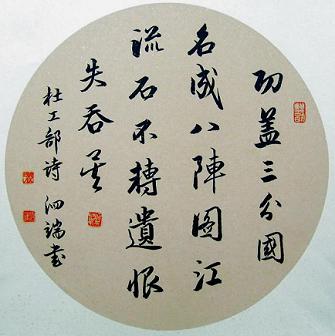 功盖三分國
名成八陣圖江
流石不轉遺恨
失吞吴
杜工部诗 泗瑞书